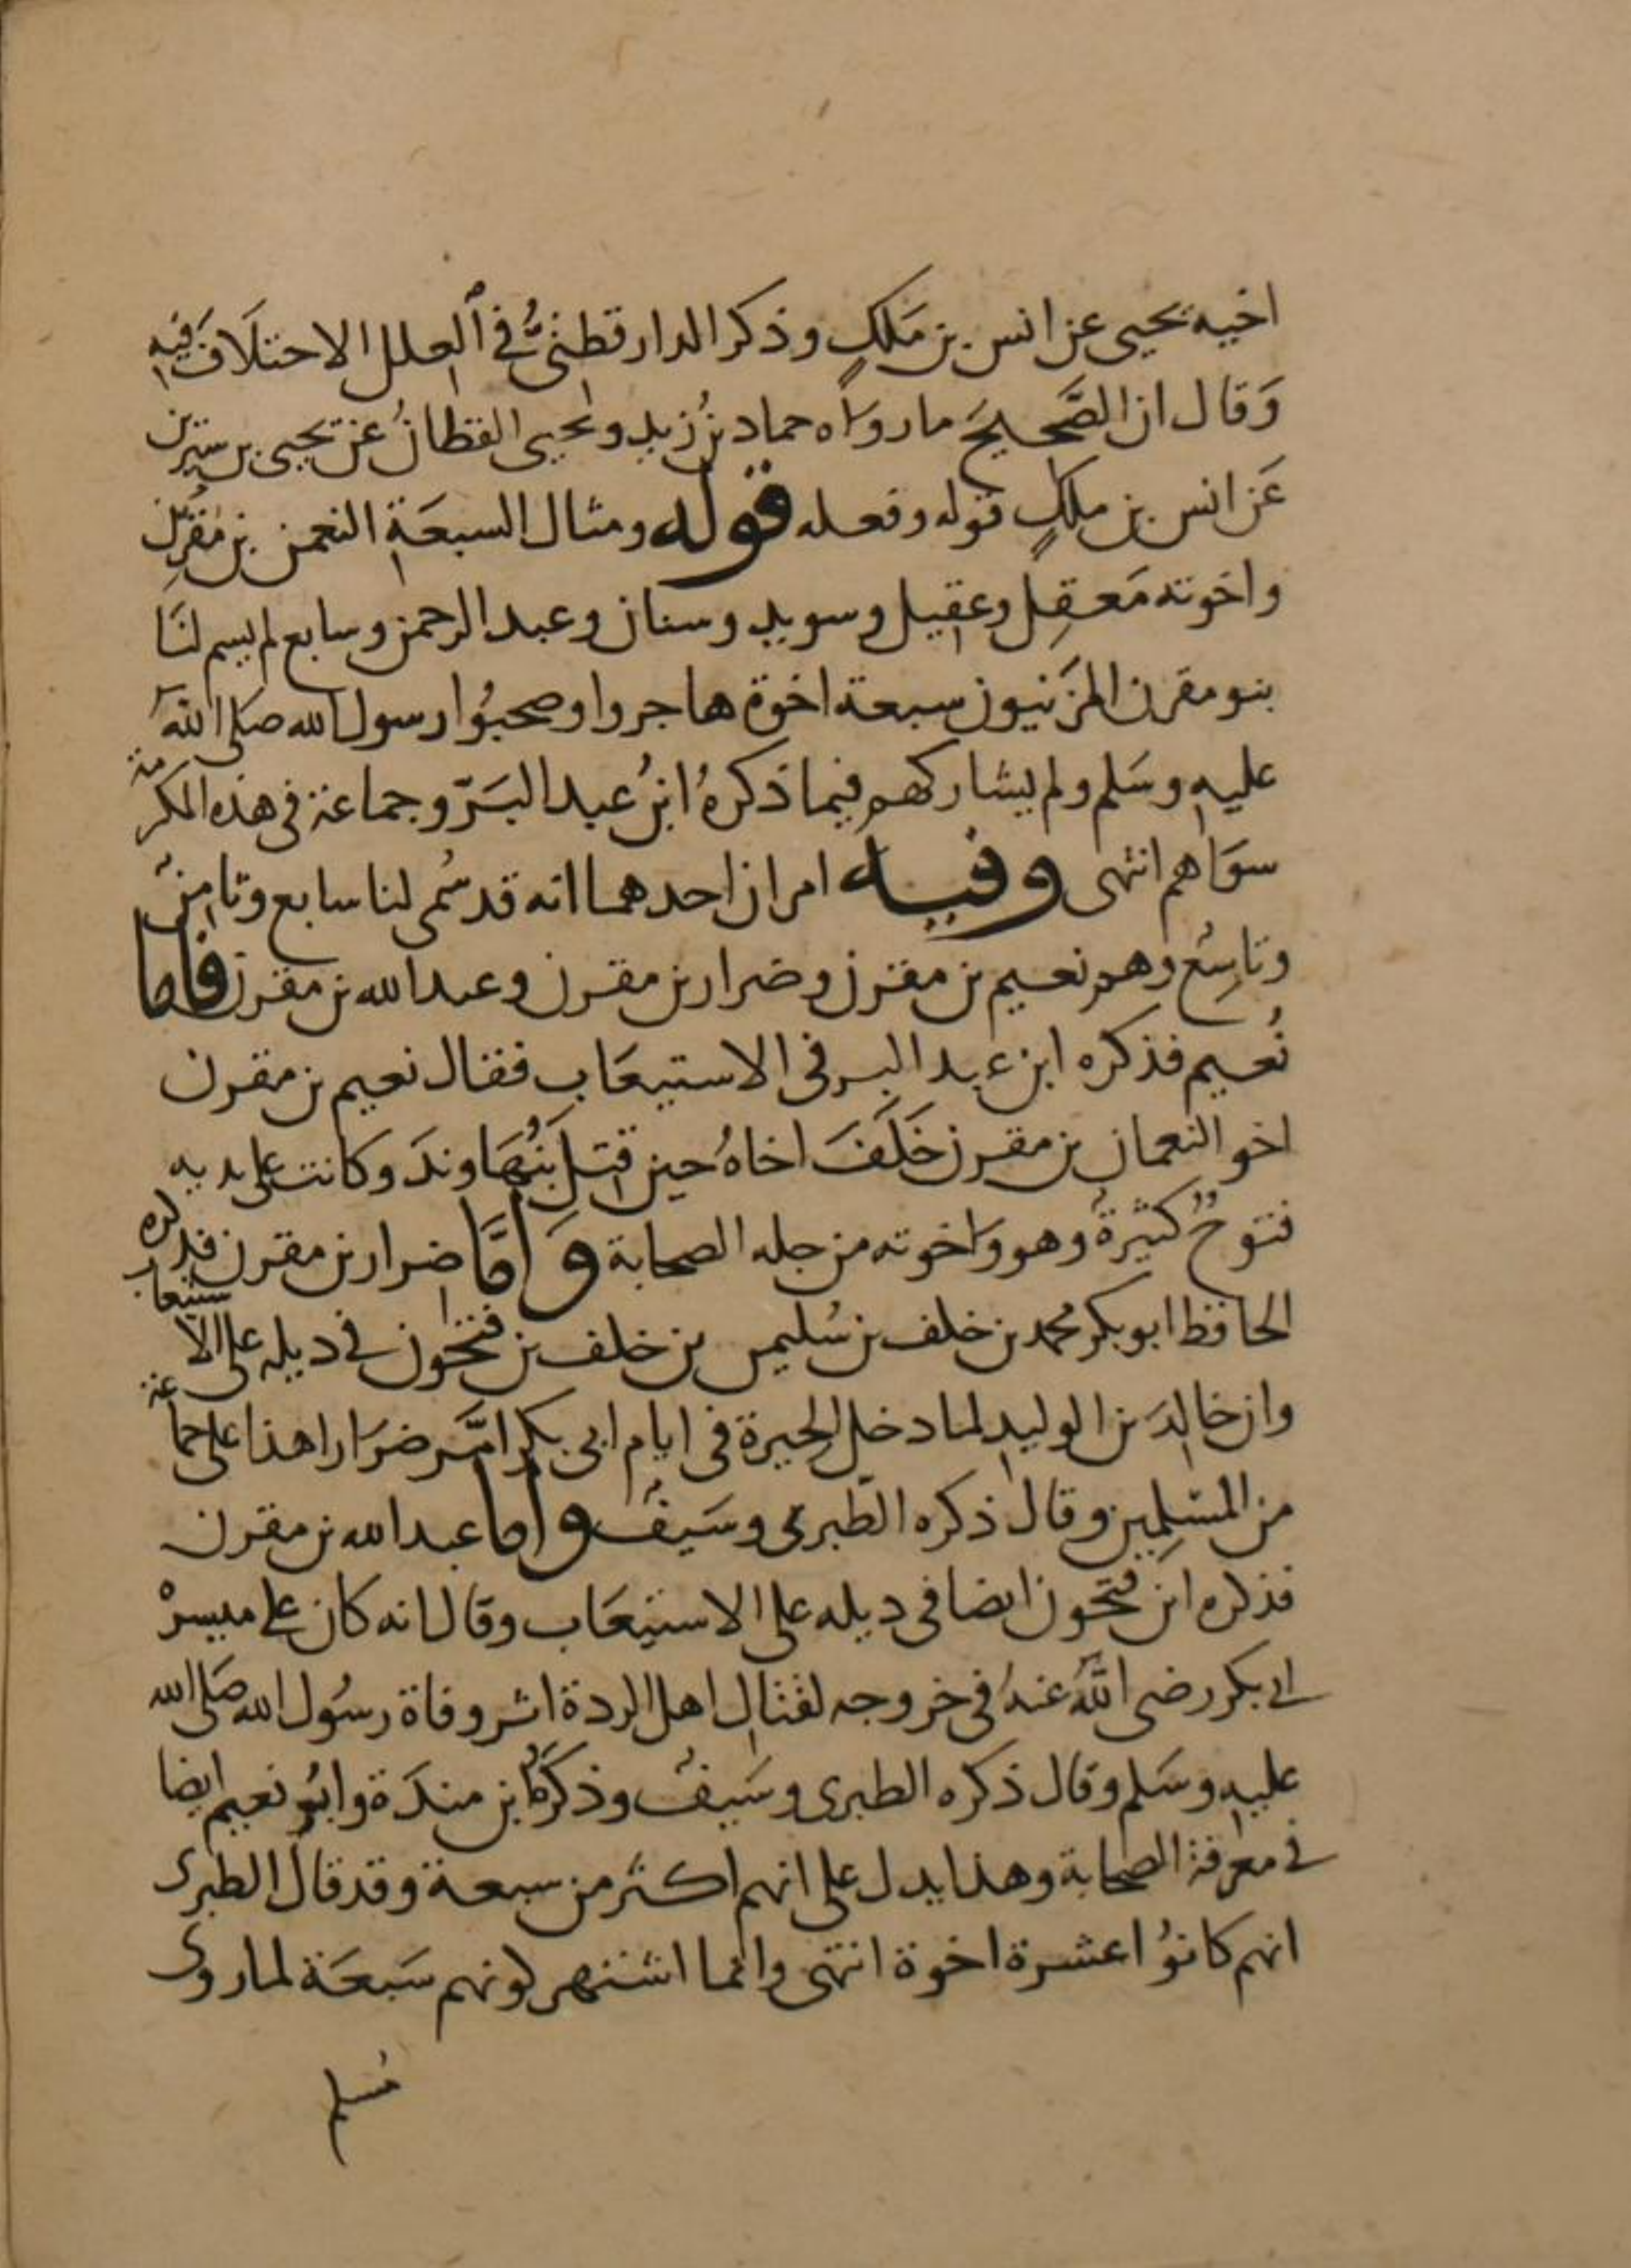 اخيه يحيى عن انس بن مَلكٍ وذكر الدارقطنىُّ في العلل الاختلَافَ فيه
وَقال ان الصَّحيحَ ما روَاه حماد بنُ زيد ويحيى القطانُ عن يحيى بن سيرين
عَن انس بن ملكٍ قوله وفعله قوله ومثال السبعَة النعمن بن مُقرِّن
واخوته مَعقِل وعقيل وسويد وسنان وعبد الرحمن وسابع لم يسم لنَا
بنو مقرن المزَنيون سبعة اخوة هاجروا وصحبُوا رسول الله صَلى الله
عليه وسَلم ولم يشاركهم فيما ذكرهُ ابنُ عبد البَرّ وجماعة في هذه المكرمة
سوَاهم انتهى وفيه امران احدهما انه قد سُمى لنا سابع وثامِنٌ
وتاسِعٌ وهم نعيم بن مقرن وضرار بن مقرن وعبد الله بن مقرن فاما
نُعيم فذكره ابن عبد البر في الاستيعَاب فقال نعيم بن مقرن
اخو النعمان بن مقرن خَلَفَ اخاهُ حين قتل بَنُهَاوندَ وكانت على يديه
فتوحٌ كثيرةٌ وهو وَاخوته من جله الصحابة وَامَّا ضرار بن مقرن فذكره
الحافظ ابو بكر محمد بن خلف بن سُليمن بن خلف بن فتحون في ديله على الاستيعاب
وان خالدَ بن الوليد لما دخل الحيرة في ايام ابى بكر امَّر ضرَارا هذا على جماعة
من المسْلِمِين وقال ذكره الطبرى وسَيفٌ واما عبد الله بن مقرن
فذكره ابن فتحون ايضا في ديله على الاستيعَاب وقال انه كان على ميسرة
ابى بكر رضى اللهُ عنهُ في خروجه لقتال اهل الردة اثر وفاة رسُول الله صَلى الله
عليه وسَلم وقال ذكره الطبرى وسَيفٌ وذكرَهُ ابن مندَة وابُو نعيم ايضا
في معرفة الصحابة وهذا يدل على انهم اكثر من سبعة وقد قال الطبرى
انهم كانوُا عشرة اخوة انتهى وانما اشتهر كونهم سَبعَة لما روى
مُسلم